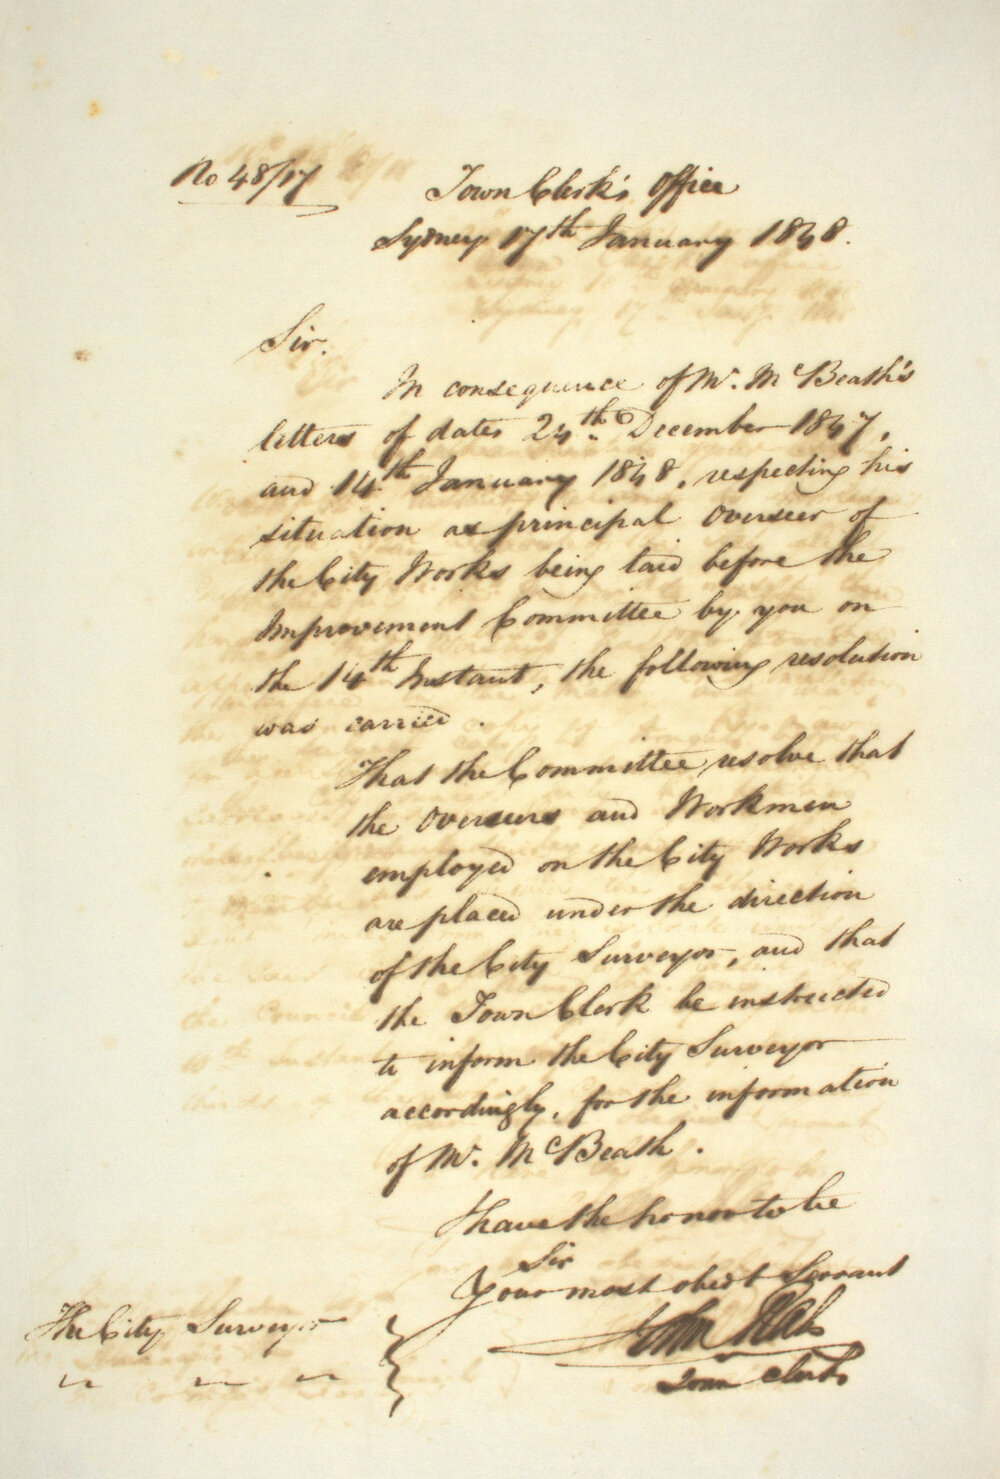 No 48/17
Town Clerk's Office
Sydney 17th January 1848.
Sir.
In consequence of Mr. McBeath's
letters of dates 24th December 1847,
and 14th January 1848, respecting his
situation as principal Overseer of
the City Works being laid before the
Improvement Committee by you on
the 14th Instant, the following resolution
was carried.
That the Committee resolve that
the Overseers and Workmen
employed on the City Works
are placed under the direction
of the City Surveyor, and that
the Town Clerk be instructed
to inform the City Surveyor
accordingly, for the information
of Mr. McBeath.
I have the honor to be
Sir
Your most obedt Servant
John
Town Clerk
The City Surveyor